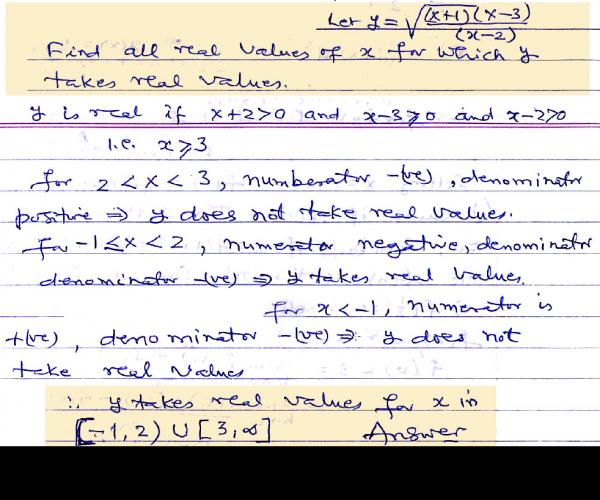 Let y = √((x+1)(x-3)/(x-2))
Find all real values of x for which y
takes real values.
y is real if x+2>0 and x-3⩾0 and x-2>0
i.e. x⩾3
for 2<x<3, numberator -(ve), denominator
positive ⇒ y does not take real values.
for -1≤x<2, numerator negative, denominator
denominator -(ve) ⇒ y takes real values.
for x<-1, numerator is
+(ve), denominator -(ve) ⇒ y does not
take real values
∴ y takes real values for x in
[-1, 2) ∪ [3, ∞] Answer